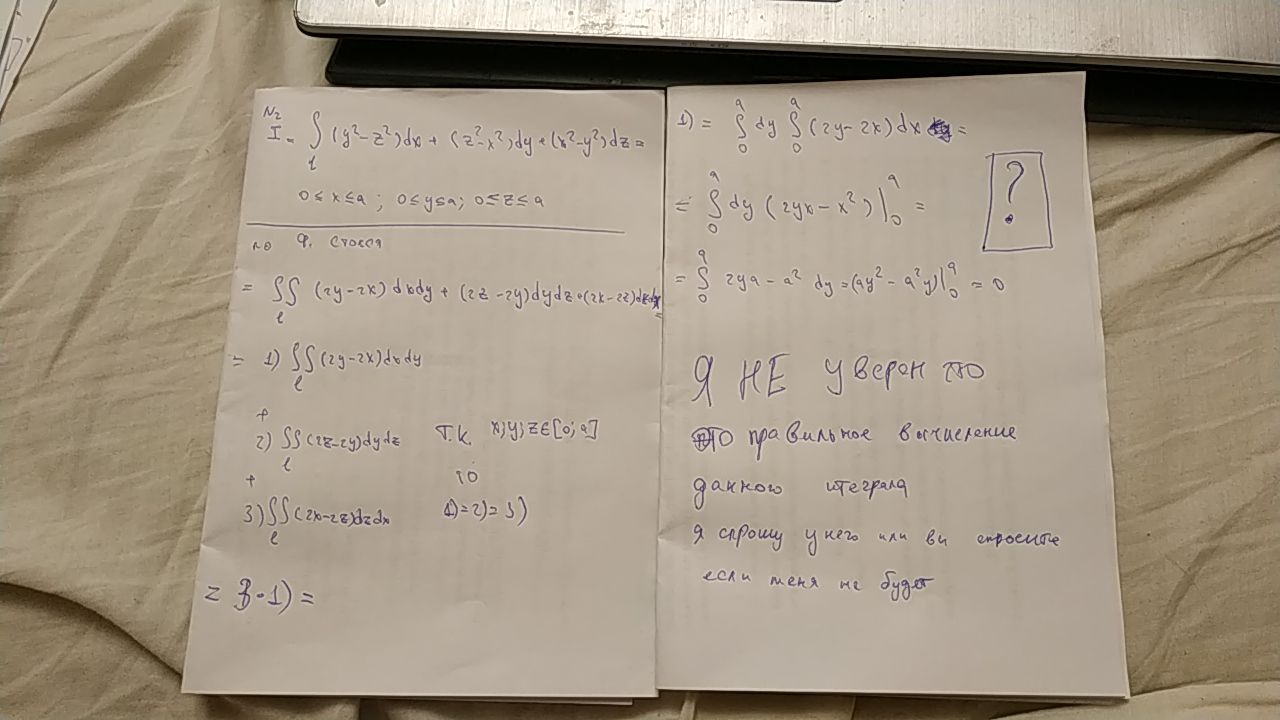 N2
I = ∫ (y²-z²)dx + (z²-x²)dy + (x²-y²)dz =
l
0 ≤ x ≤ a ; 0 ≤ y ≤ a; 0 ≤ z ≤ a
по ф. Стокса
= ∬ (2y-2x) dxdy + (2z-2y)dydz + (2x-2z)dzdx
l
=
= 1) ∬ (2y-2x)dxdy
l
+
2) ∬ (2z-2y)dydz т.к. x;y;z∈[0;a]
l
+ то
3) ∬ (2x-2z)dzdx 1)=2)=3)
l
= 3·1) =
1) = ∫₀ᵃ dy ∫₀ᵃ (2y-2x)dx =
= ∫₀ᵃ dy (2yx-x²)|₀ᵃ =
?
= ∫₀ᵃ 2ya-a² dy = (ay²-a²y)|₀ᵃ = 0
Я НЕ уверен что
это правильное вычисление
данного итеграла
я спрошу у него или вы спросите
если меня не будет